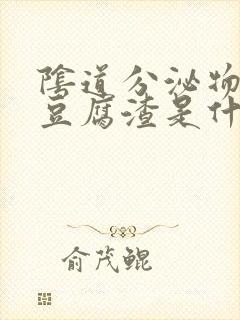 陰道分泌物
豆腐渣是什
俞茂鲲